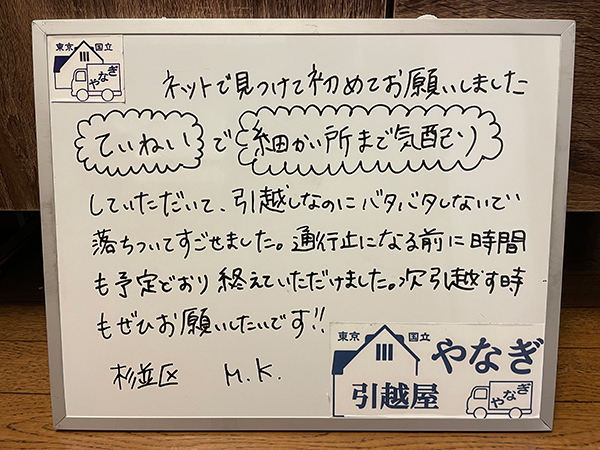 東京 国立
やなぎ
ネットで見つけて初めてお願いしました
ていねいで細かい所まで気配り
していただいて、引越しなのにバタバタしないでい
落ちついてすごせました。通行止になる前に時間
も予定どおり終えていただけました。次引越す時
もぜひお願いしたいです!!
杉並区 M.K.
東京 国立
やなぎ
引越屋
やなぎ